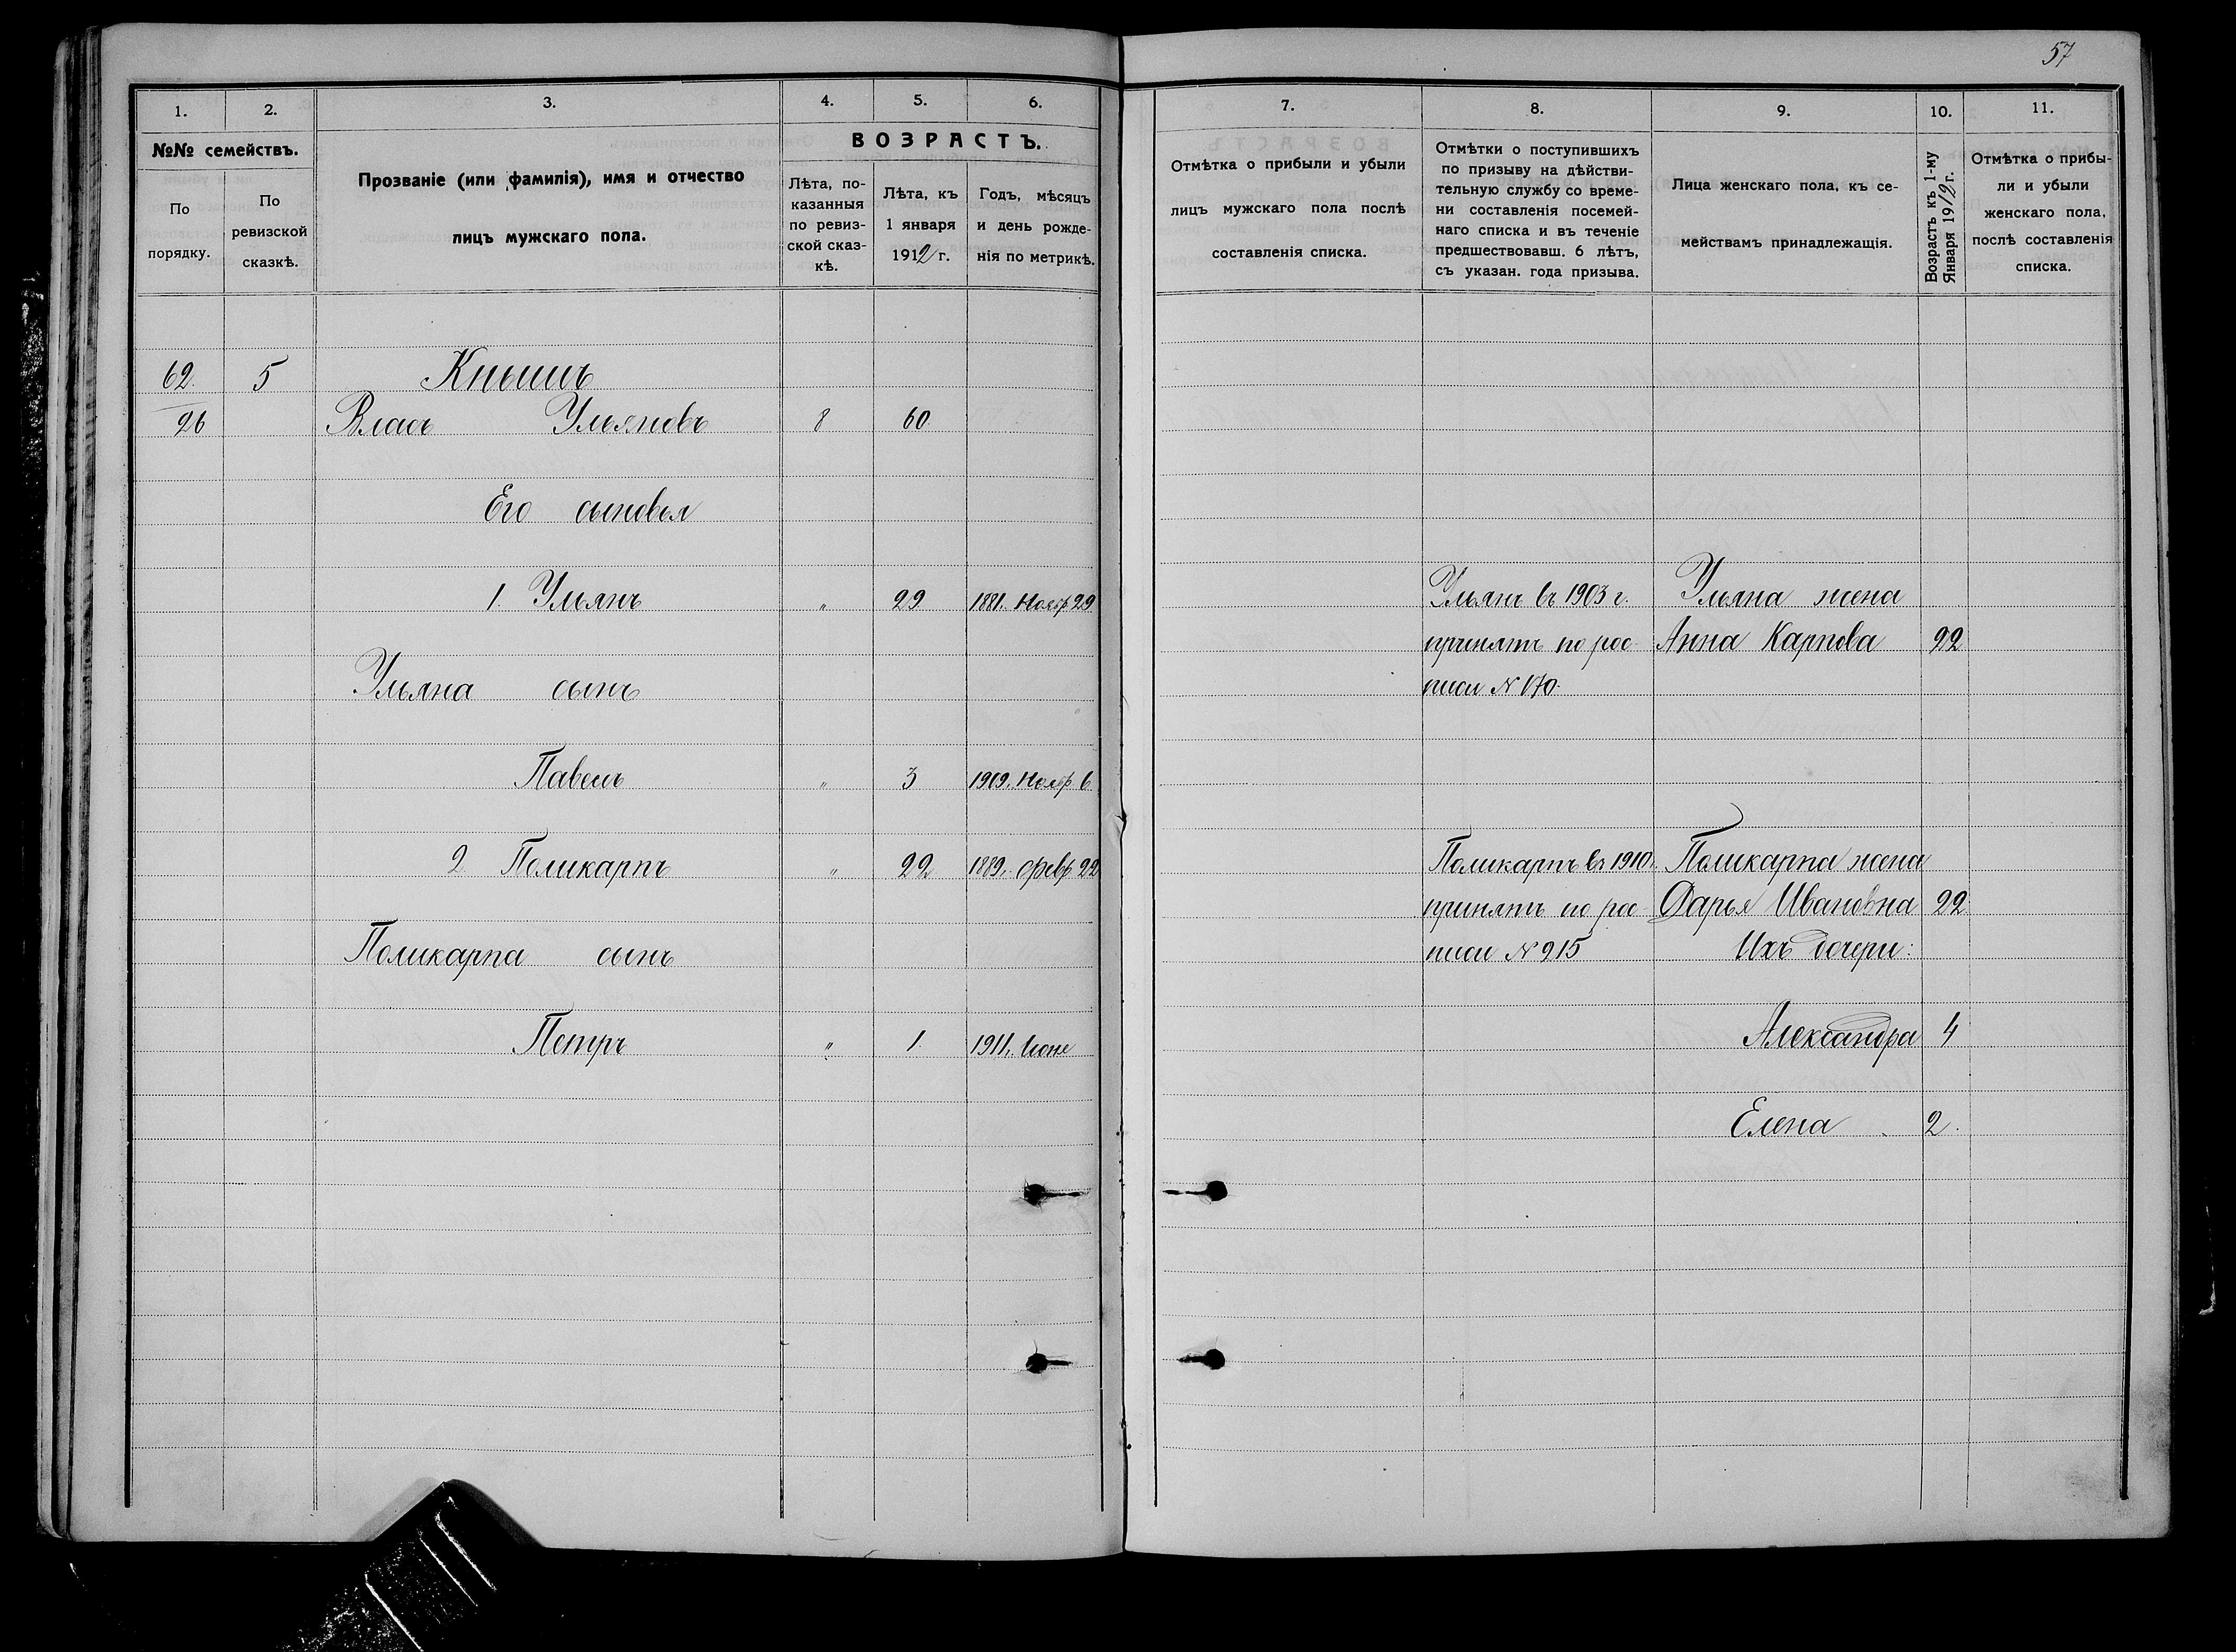 57
1. 2. 3. 4. 5. 6.
№№ семействъ.
По порядку.
По ревизской сказкѣ.
Прозваніе (или фамилія), имя и отчество
лицъ мужскаго пола.
ВОЗРАСТЪ.
Лѣта, по-
казанныя
по ревиз-
ской сказ-
кѣ.
Лѣта, къ
1 января
1912 г.
Годъ, мѣсяцъ
и день рожде-
нія по метрикѣ.
62. 5 Кнышъ
26 Власъ Ульяновъ 8 60
Его сыновья
1. Ульянъ " 29 1881. Нояб 29.
Ульяна сынъ
Павелъ " 3 1909. Нояб 6
2. Поликарпъ " 22 1889. Февр 22
Поликарпа сынъ
Петръ " 1. 1911. Іюне
7. 8. 9. 10. 11.
Отмѣтка о прибыли и убыли
лицъ мужскаго пола послѣ
составленія списка.
Отмѣтки о поступившихъ
по призыву на дѣйстви-
тельную службу со време-
ни составленія посемей-
наго списка и въ теченіе
предшествовавш. 6 лѣтъ,
съ указан. года призыва.
Лица женскаго пола, къ се-
мействамъ принадлежащія.
Возрастъ къ 1-му
Января 1912 г.
Отмѣтка о прибы-
ли и убыли
женскаго пола,
послѣ составленія
списка.
Ульянъ въ 1903 г. Ульяна жена
принятъ по рос- Анна Карпова 22
писи № 170.
Поликарпъ въ 1910. Поликарпа жена
принятъ по рос- Дарья Ивановна 22
писи № 215 Ихъ дочери:
Александра 4
Елена 2.